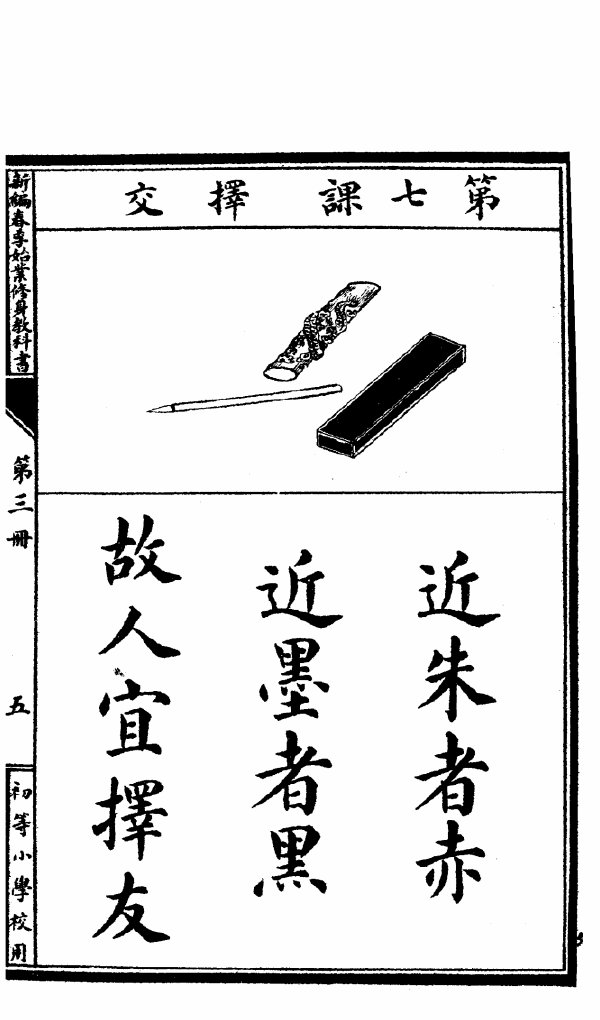 第七課 擇交
近朱者赤
近墨者黑
故人宜擇友
新編春季始業修身教科書
第三冊
五
初等小學校用